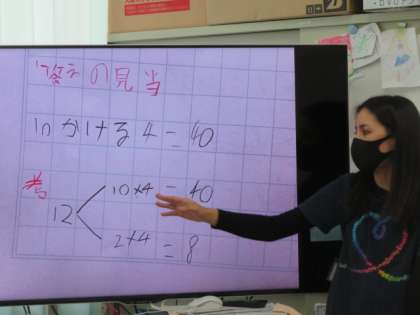 答えの見当
10かける4=40
考
12
10×4=40
2×4=8